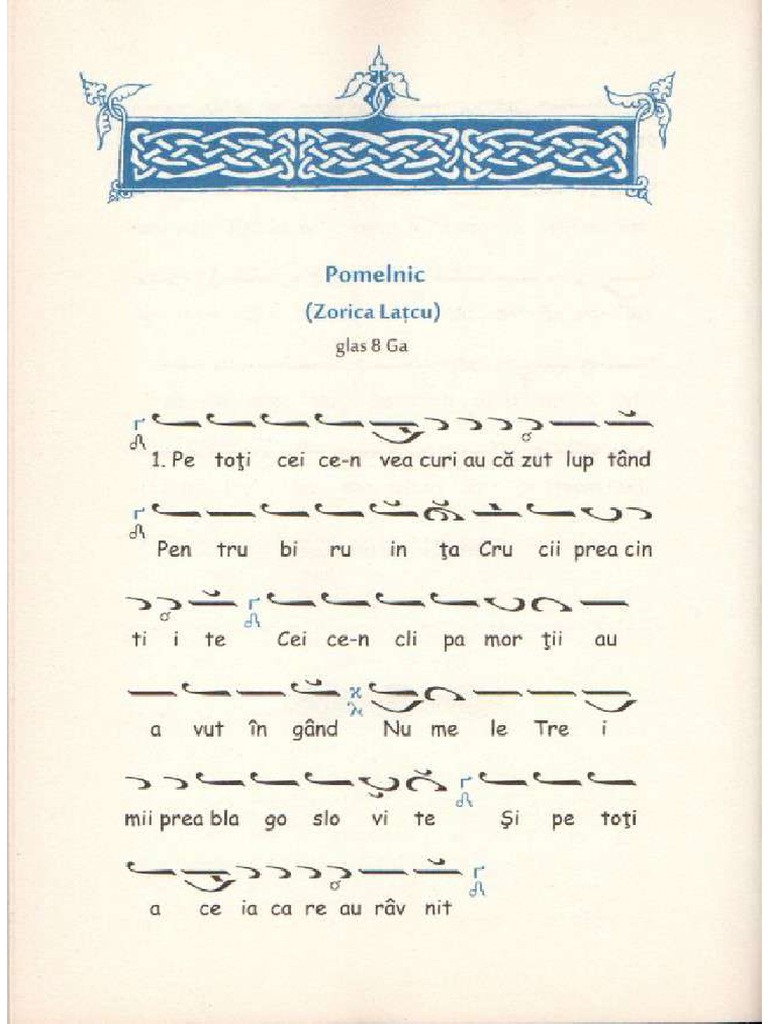 Pomelnic
(Zorica Lațcu)
glas 8 Ga
1. Pe toţi cei ce-n vea curi au că zut lup tând
Pen tru bi ru in ţa Cru cii prea cin
ti i te Cei ce-n cli pa mor ţii au
a vut în gând Nu me le Tre i
mii prea bla go slo vi te Şi pe toţi
a ce ia ca re au râv nit